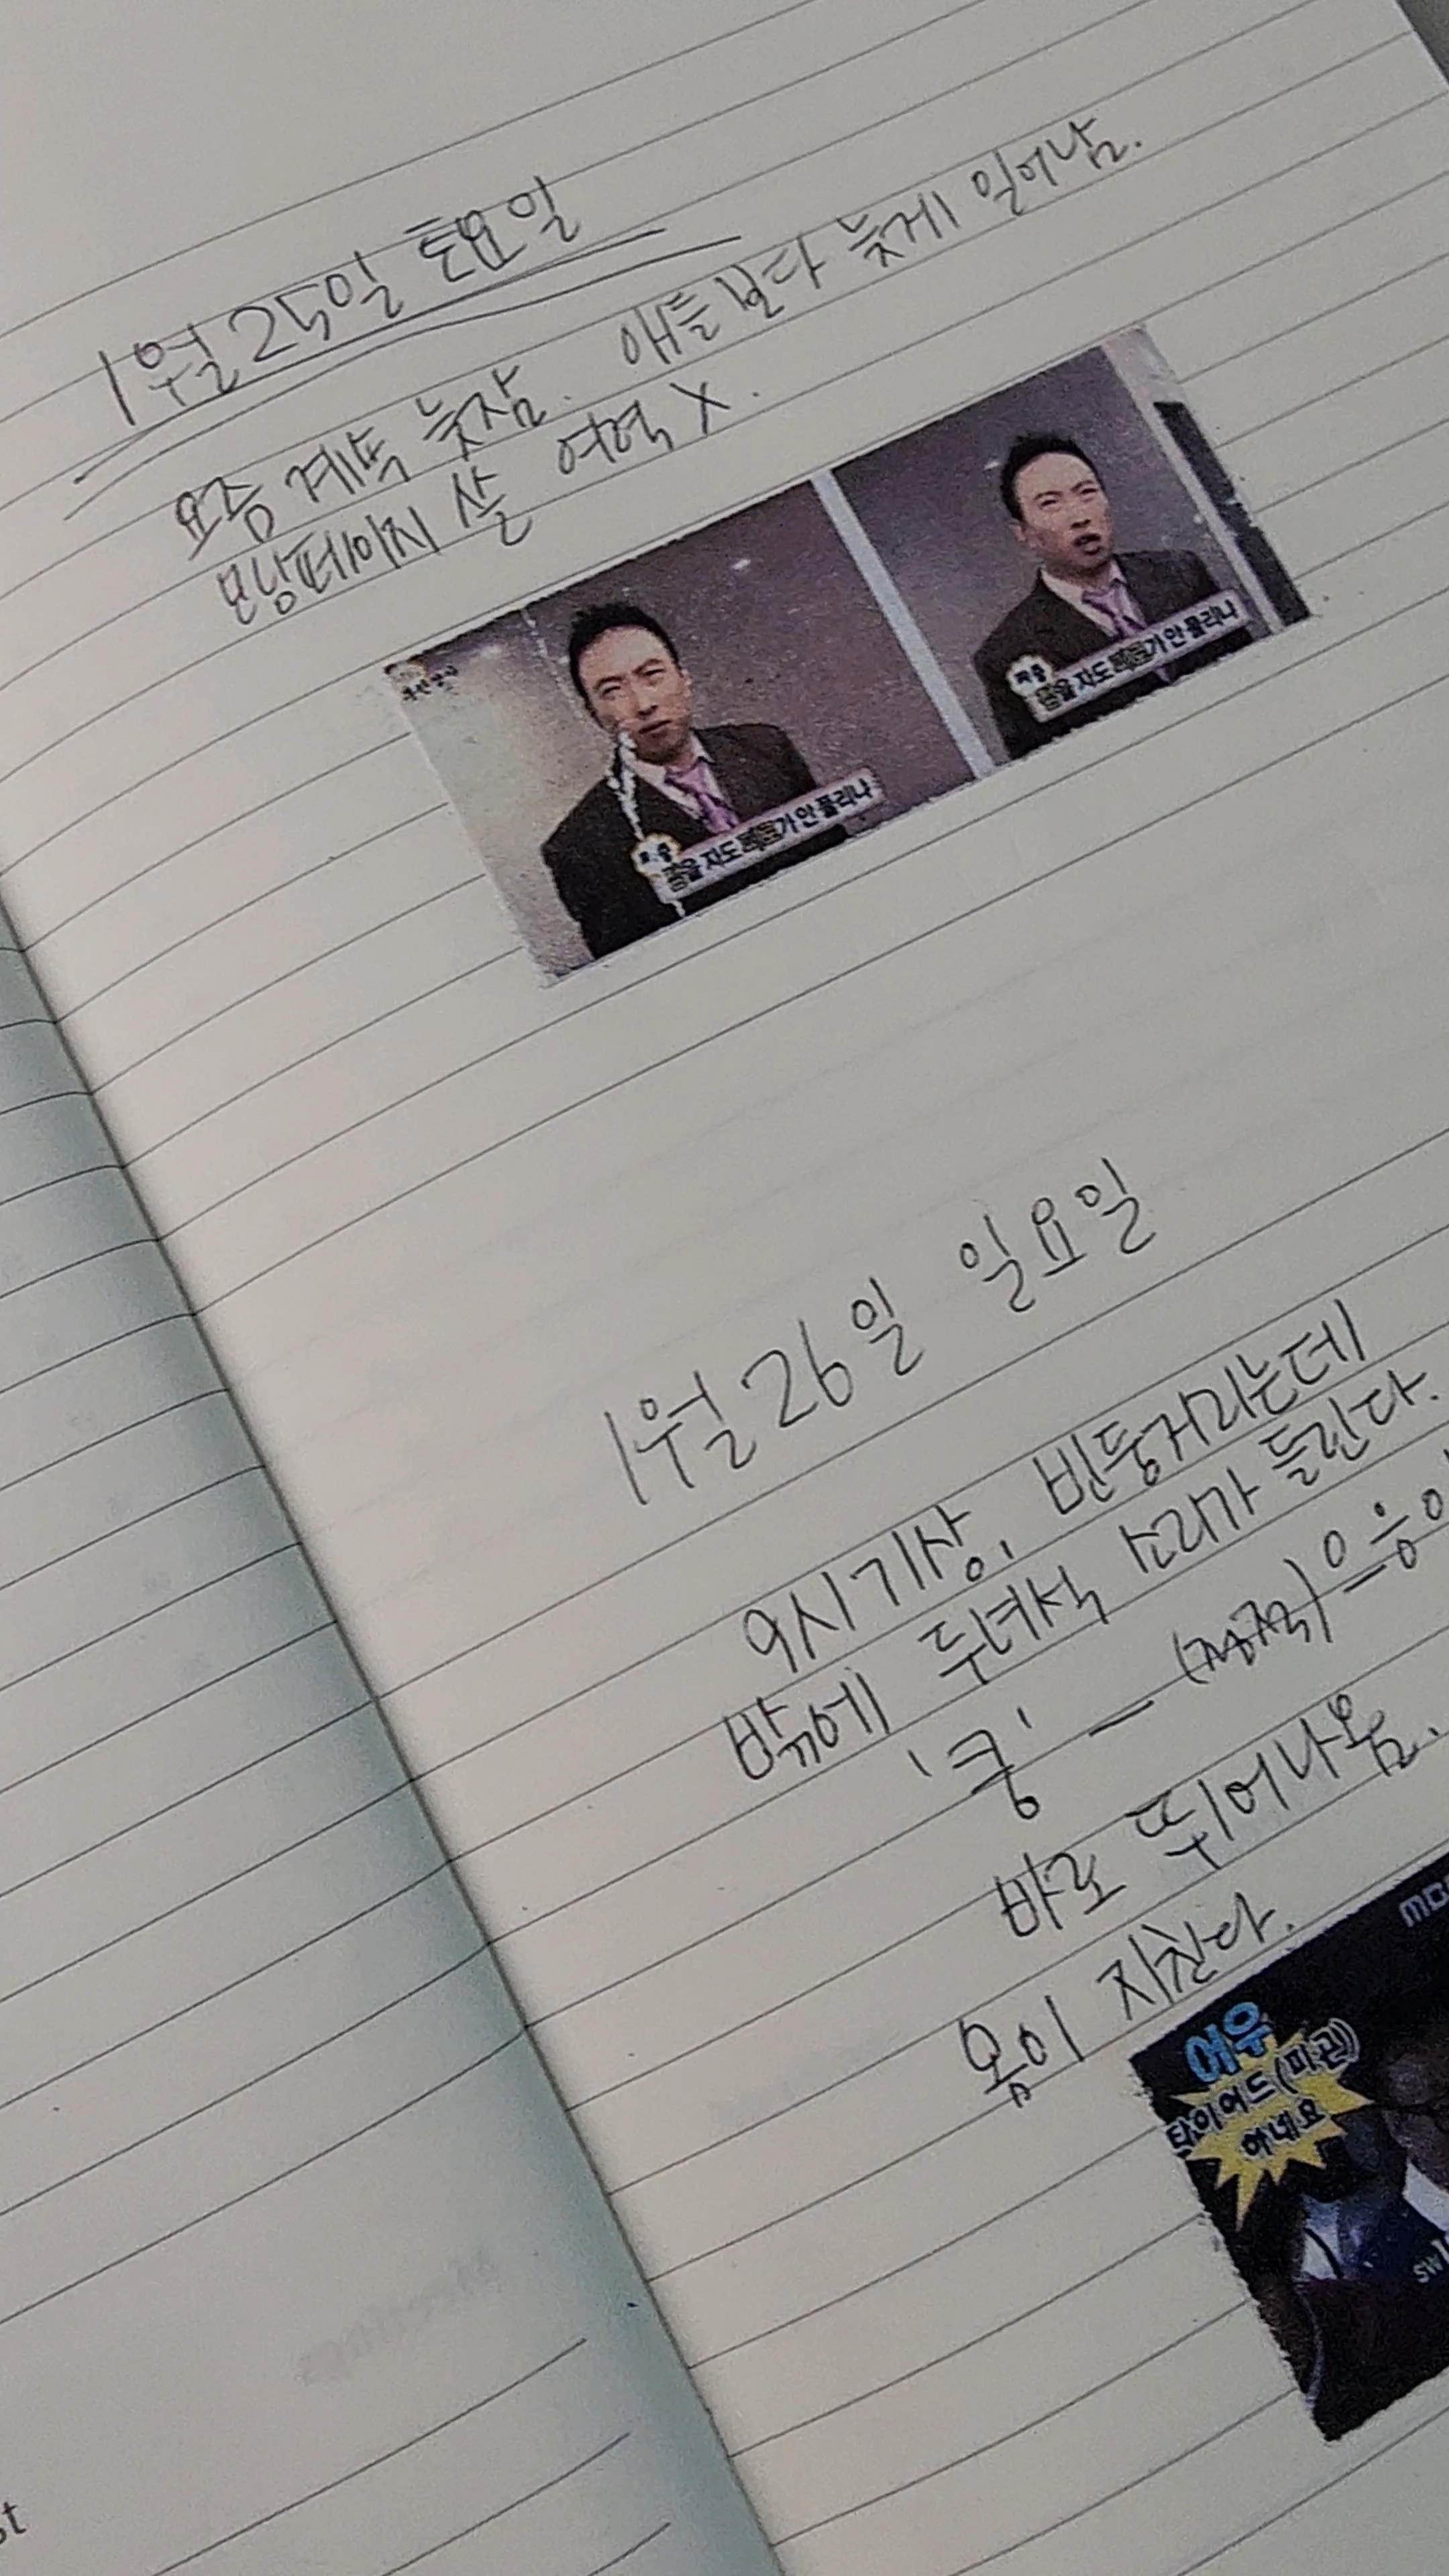 1월 25일 토요일
요즘 계속 늦잠. 애들보다 늦게 일어남.
모닝페이지 쓸 여력 X.
잠을 자도 피로가 안 풀리나
잠을 자도 피로가 안 풀리나
1월 26일 일요일
9시 기상. 빈둥거리는데
밖에 두녀석 소리가 들린다.
'쿵' — (정적) 으응아
바로 뛰어나옴.
몸이 지친다.
어우
타이어드(피곤)
하네요